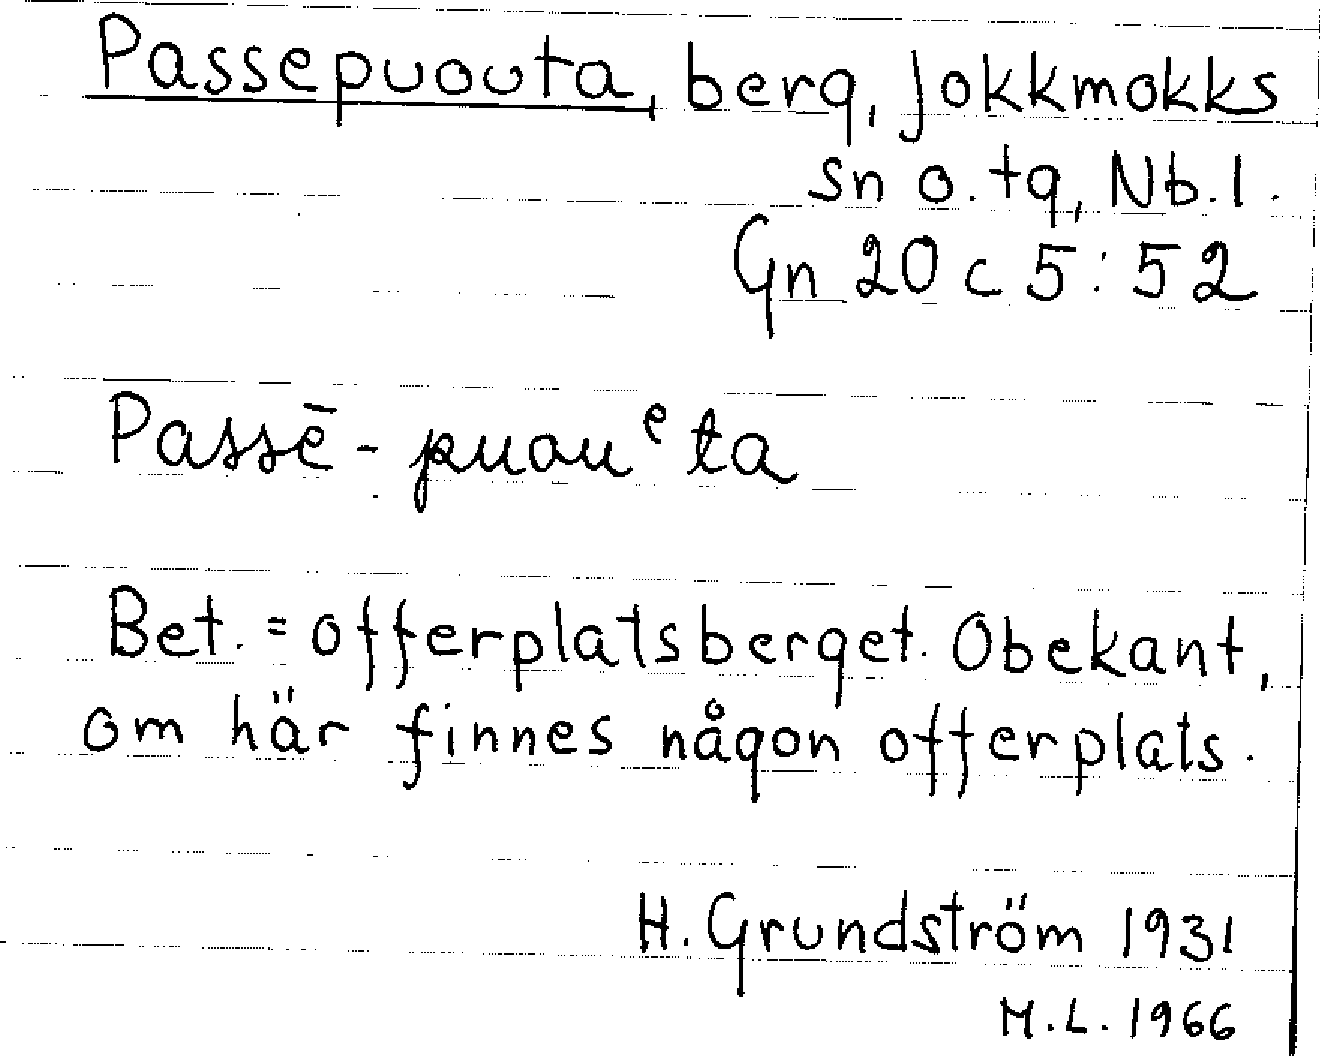 Passepuouta, berg, Jokkmokks
sn o. tg, Nb. l.
Gn 20 c 5:52
Passē-puouᵉta
Bet. = offerplatsberget. Obekant,
om här finnes någon offerplats.
H. Grundström 1931
M.L. 1966